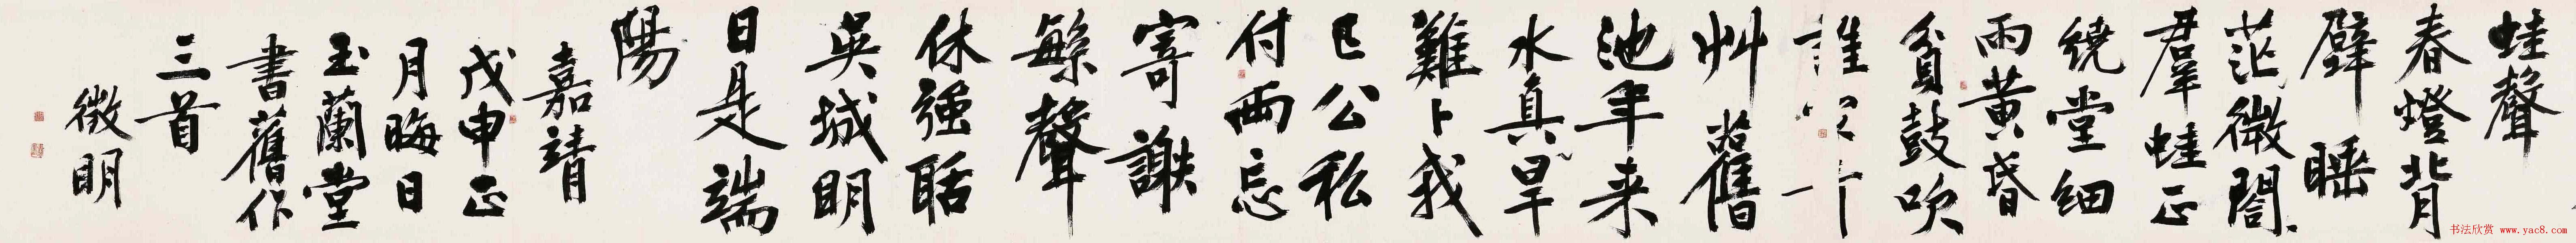 蛙聲
春燈背
壁睡
茫微閤
羣蛙正
繞堂細
雨黄昏
貧鼓吹
誰
艸舊
池年来
水真旱
難卜我
已公私
付兩忘
寄謝
繁聲
休强聒
吳城明
日是端
陽
嘉靖
戊申正
月晦日
玉蘭堂
書舊作
三首
徵明
书法欣赏 www.yac8.com